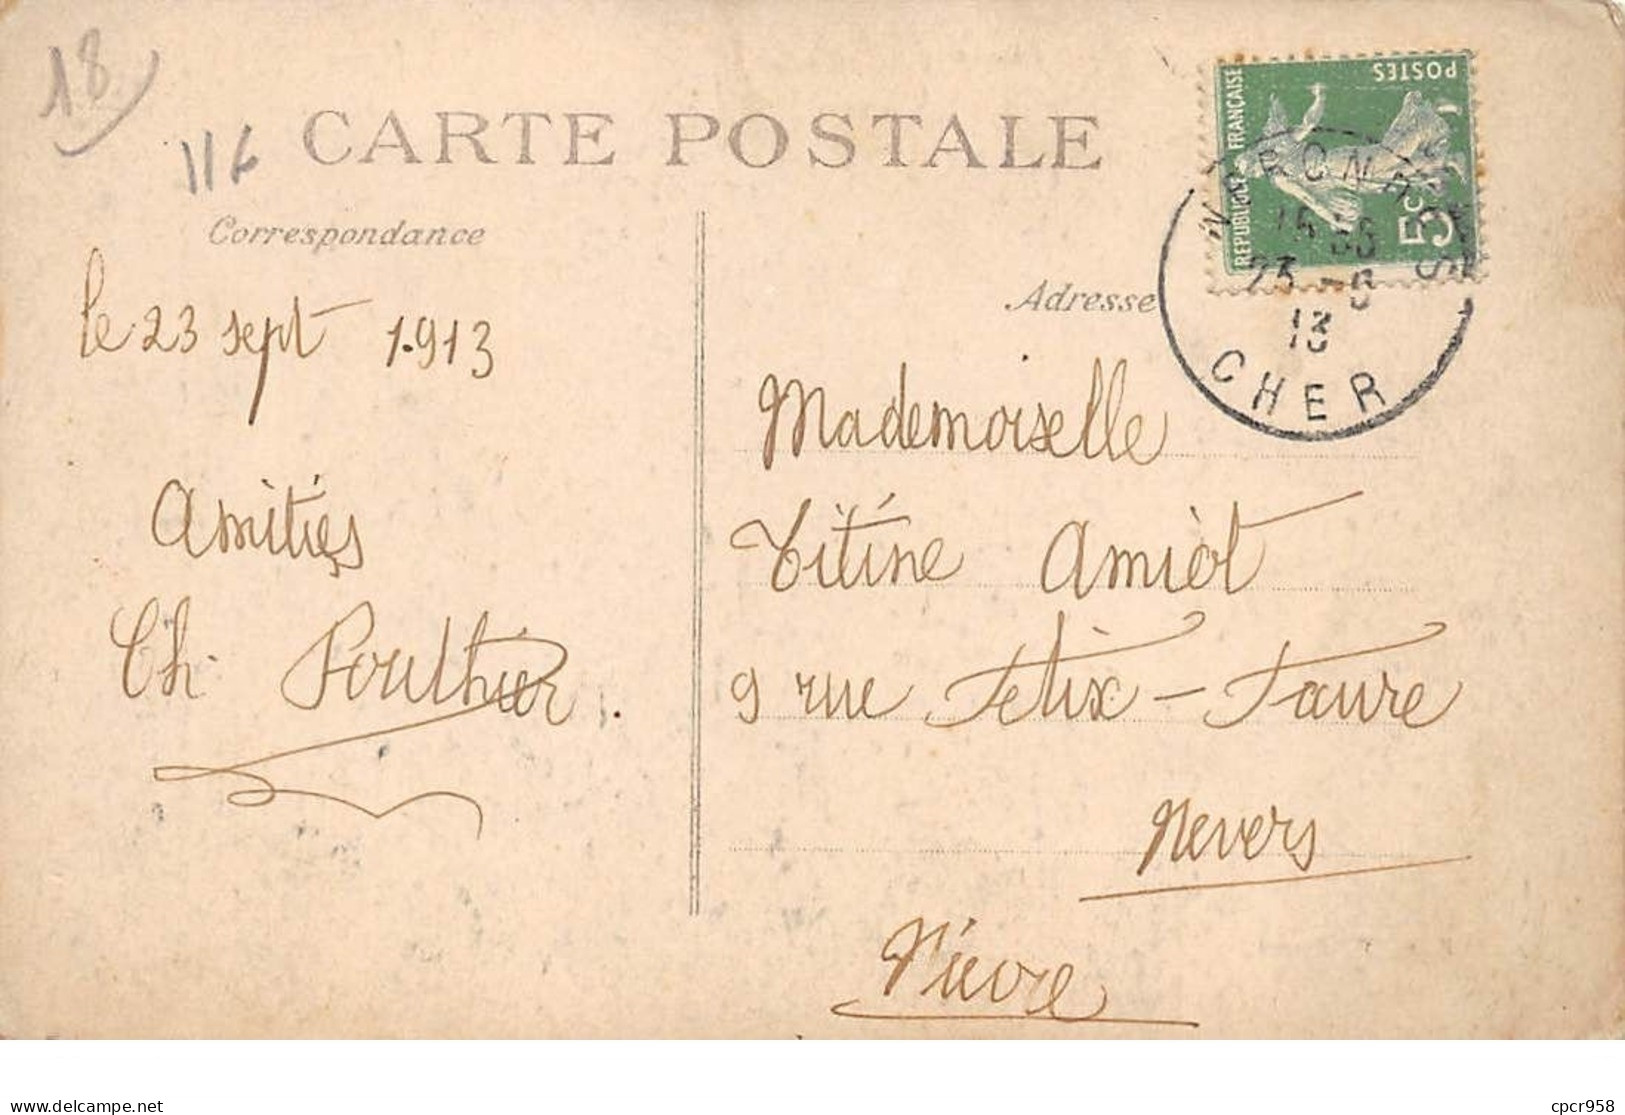 18
116
CARTE POSTALE
REPUBLIQUE FRANÇAISE
POSTES
5c
15
23 - 9
13
CHER
Correspondance
Adresse
le 23 sept 1.913
Amitiés
Ch. Pouthier.
Mademoiselle
Titine Amiot
9 rue Félix-Faure
Nevers
Nièvre
delcampe.net
cpcr958